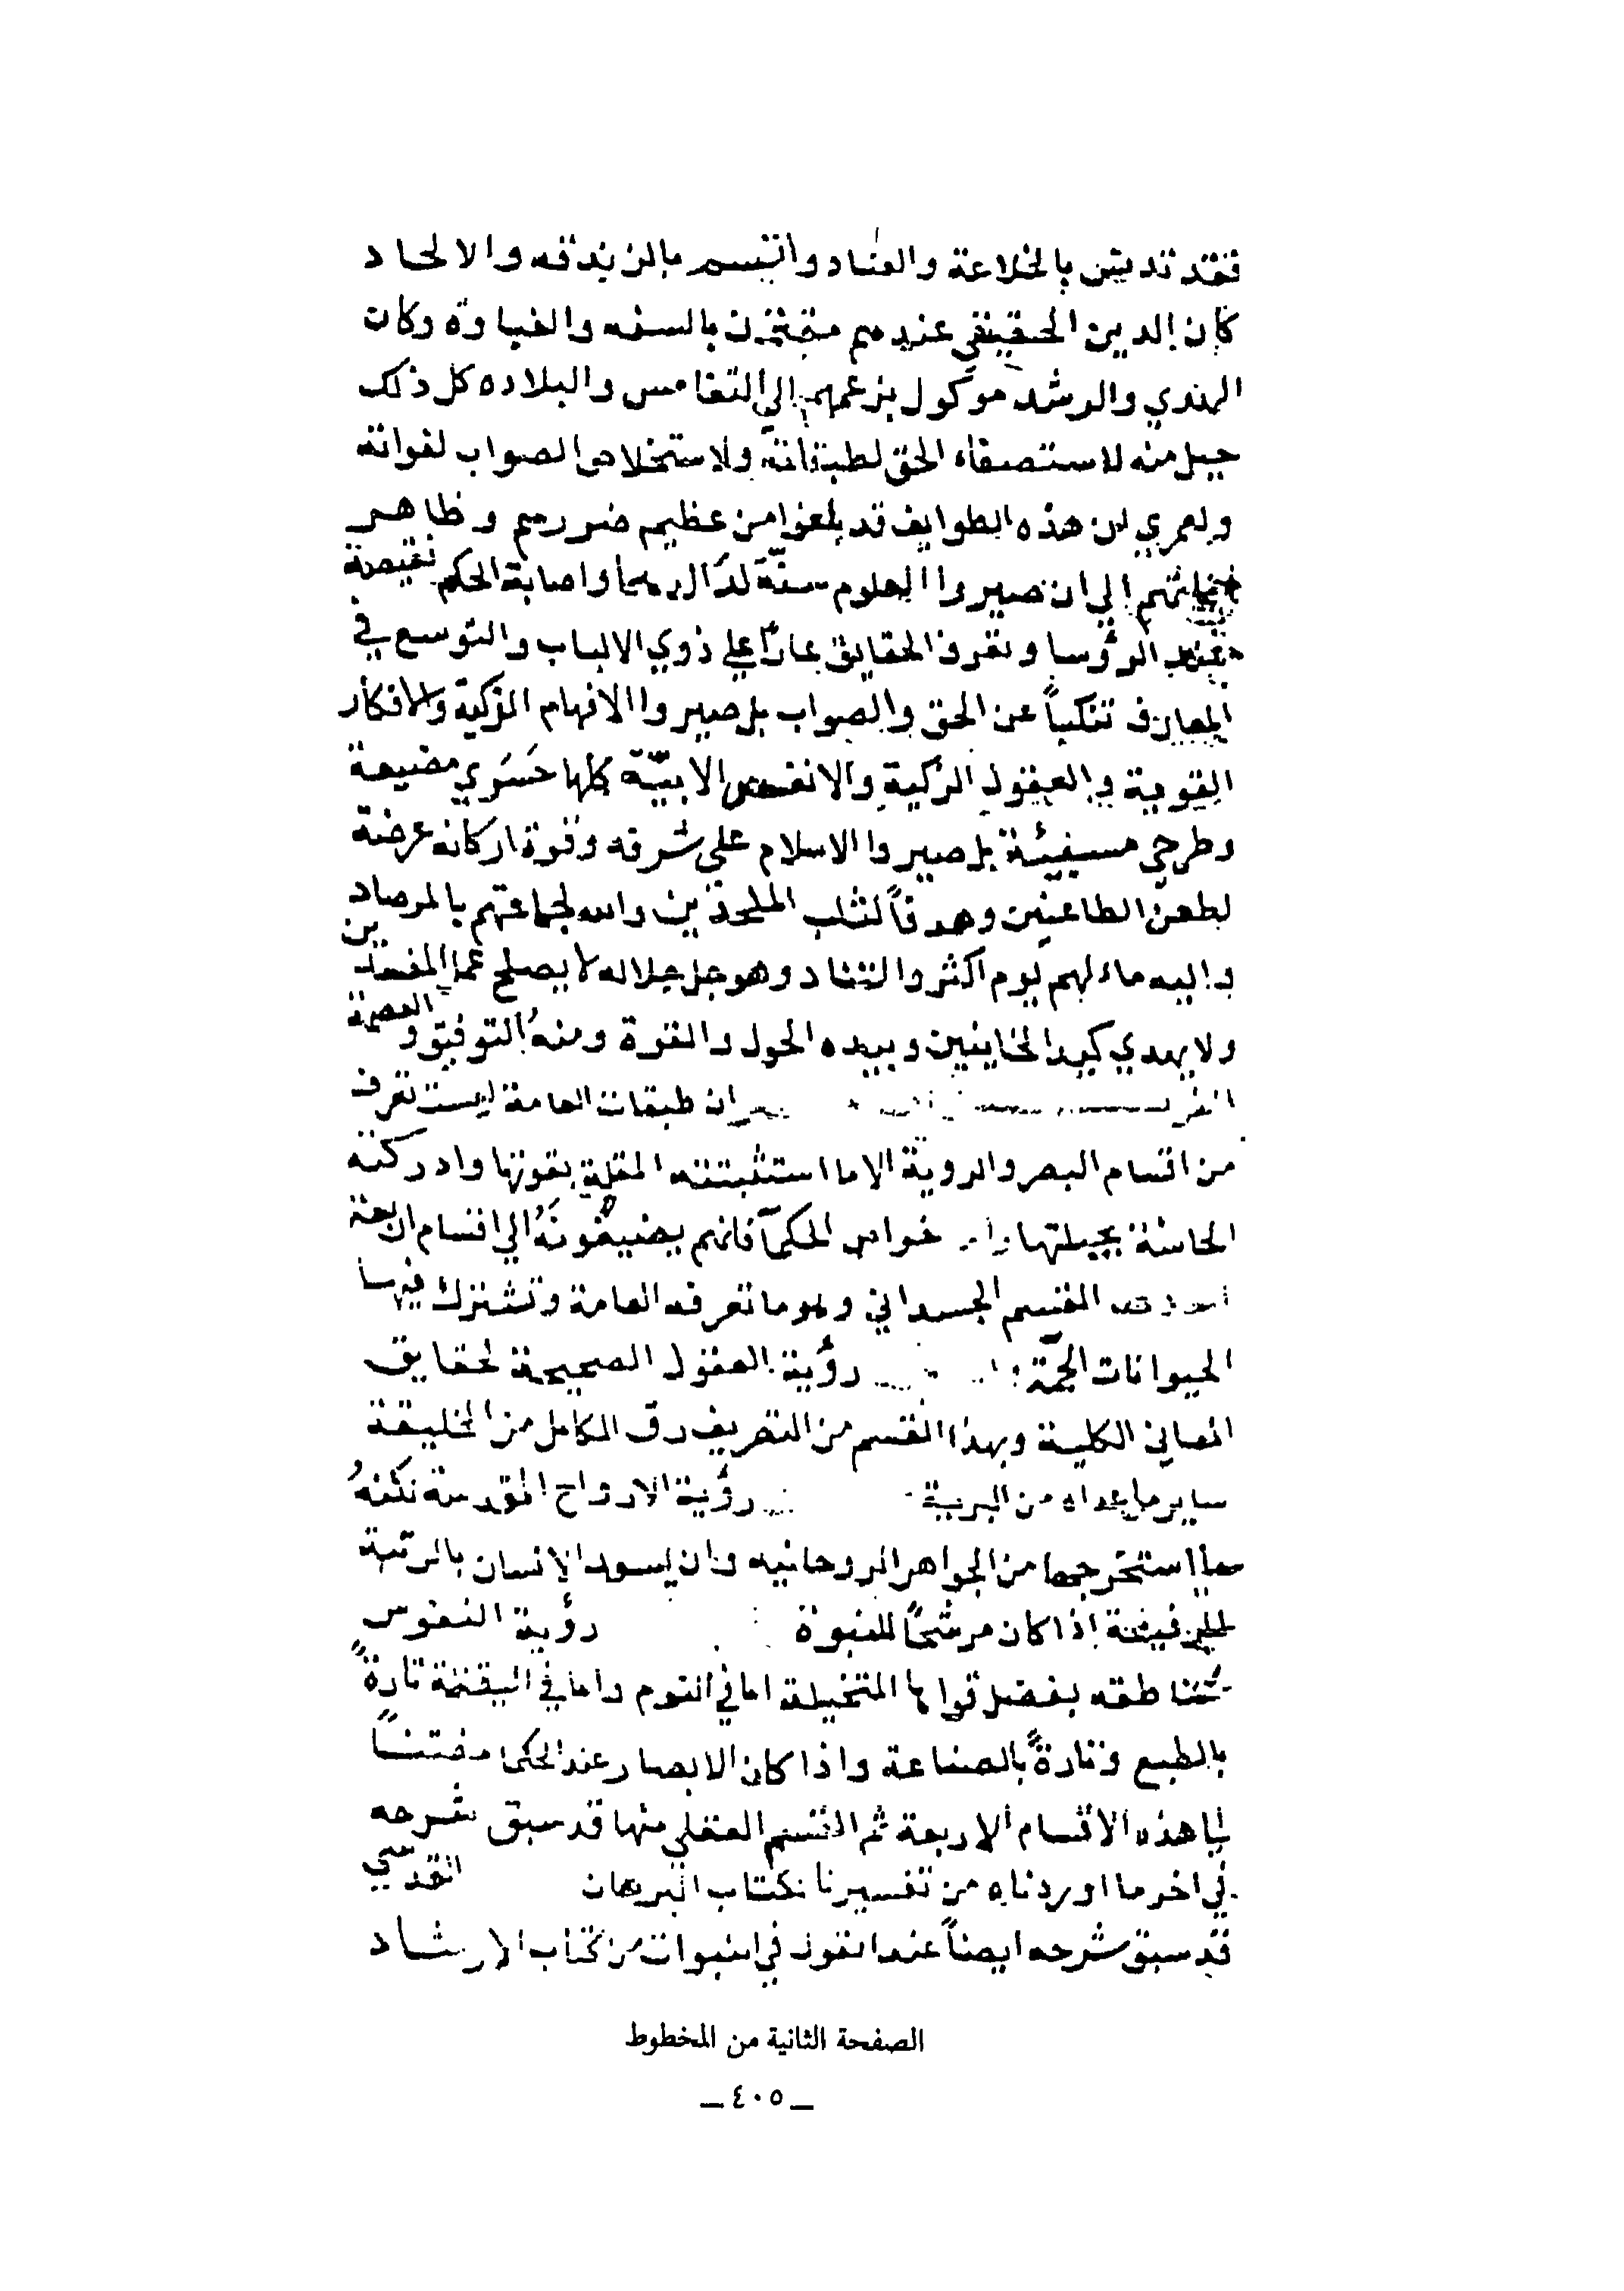 فقد تدين بالخلاعة والعناد واتسم بالزندقه والالحاد
كان الدين الحقيقي عندهم مقترن بالسفه والغباوة وكان
الهدي والرشد موكول بزعمهم الي التغامس والبلاده كل ذلك
جهل منه لاستصفاء الحق لطبقاته ولاستخلاص الصواب لغواته
ولعمري ان هذه الطوايف قد بلغوا من عظيم ضررهم وظاهر
الي ان صيروا العلوم سبّة لدا الدهما واصابة الحكم نقيصة
عند الرؤسا وتعرف الحقايق عاراً علي ذوي الالباب والتوسع في
المعارف تنكباً عن الحق والصواب بل صيروا الافهام الذكية والافكار
القوية والعقول الزكية والانفس الابيّة كلها حَسَرَي مضيعة
وطرحي مسيئة بل صيروا الاسلام علي شرفه وقوة اركانه عرضة
لطعن الطاعنين وهدفاً لثلب الملحدين والله لجماعتهم بالمرصاد
واليه ماءلهم يوم اكثروا التناد وهو جل جلاله لا يصلح عمل المفسدين
ولا يهدي كيد الخاينين وبيده الحول والقوة ومنهُ التوفيق والعصمة
ان طبقات العامة ليست تعرف
من اقسام البصر والروية الا ما استثبتته المقلة بقوتها وادركته
الحاسّة بجبلتها خواص الحكمآ فانهم يضيفونَهُ الي اقسام اربعة
القسم الجسداني وهو ما تعرفه العامة وتشترك فيها
الحيوانات الجمّة رؤية العقول الصحيحة لحقايق
المعاني الكلية وبهذا القسم من التعريف رق الكامل من الخليقة
ساير ما عداه من البرية رؤية الارواح المقدسة نكتهُ
استخرجها من الجواهر الروحانيه وان يسود الانسان بالمرتبة
اذا كان مرشحاً للنبوة رؤية النفوس
الناطقه بفضل قواها المتخيلة اما في النوم واما في اليقظة تارةً
بالطبع وتارةً بالصناعة واذا كان الابصار عند الحكما مفتناً
الي هذه الاقسام الاربعة ثم القسم العقلي منها قد سبق شرحه
في اخر ما اوردناه من تفسيرنا لكتاب البرهان القدسي
قد سبق شرحه ايضاً عند القول في النبوات من كتاب الارشاد
الصفحة الثانية من المخطوط
ـ ٤٠٥ ـ